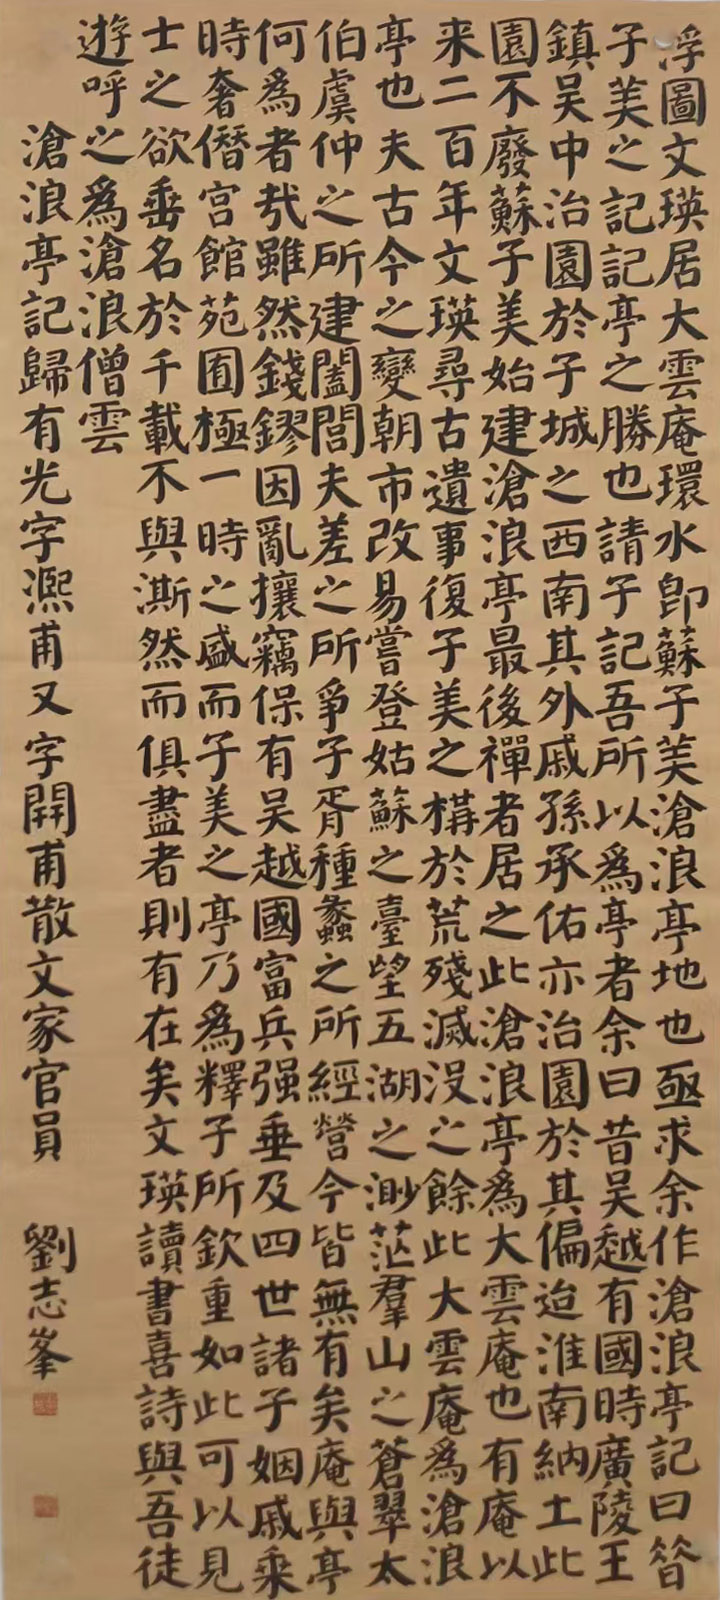 浮圖文瑛居大雲庵環水即蘇子美滄浪亭地也亟求余作滄浪亭記曰昔
子美之記記亭之勝也請子記吾所以為亭者余曰昔吳越有國時廣陵王
鎮吳中治園於子城之西南其外戚孫承佑亦治園於其偏迨淮南納土此
園不廢蘇子美始建滄浪亭最後禪者居之此滄浪亭為大雲庵也有庵以
来二百年文瑛尋古遺事復子美之構於荒殘滅没之餘此大雲庵為滄浪
亭也夫古今之變朝市改易嘗登姑蘇之臺望五湖之渺茫羣山之蒼翠太
伯虞仲之所建闔閭夫差之所爭子胥種蠡之所經營今皆無有矣庵與亭
何為者哉雖然錢鏐因亂攘竊保有吳越國富兵强垂及四世諸子姻戚乘
時奢僭宮館苑囿極一時之盛而子美之亭乃為釋子所欽重如此可以見
士之欲垂名於千載不與澌然而俱盡者則有在矣文瑛讀書喜詩與吾徒
遊呼之為滄浪僧雲
滄浪亭記歸有光字熙甫又字開甫散文家官員 劉志峯